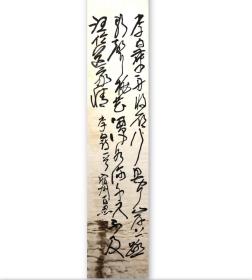 李白乘舟将欲行忽闻岸上踏
歌声桃花潭水深千尺不及
汪伦送我情
李白